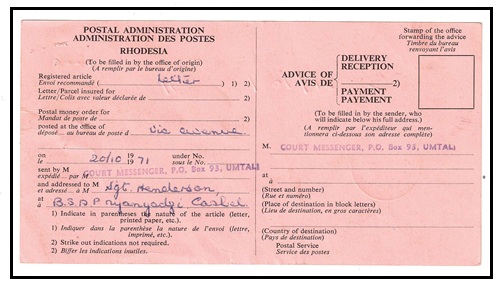 POSTAL ADMINISTRATION
ADMINISTRATION DES POSTES
RHODESIA
(To be filled in by the office of origin)
(A remplir par le bureau d'origine)
Registered article
Envoi recommandé ( Letter ) 1) 2)
Letter/Parcel insured for
Lettre/Colis avec valeur déclarée de 2)
Postal money order for
Mandat de poste de 2)
posted at the office of
déposé au bureau de poste d Vic Avenue
on
le 20/10 19 71 under No.
sous le No.
sent by M
expédié par M COURT MESSENGER, P.O. Box 93, UMTALI
and addressed to M
et adressé à M Sgt. Henderson,
at
à B.S.A.P Nyanyadzi Cashel
1) Indicate in parentheses the nature of the article (letter,
printed paper, etc.).
1) Indiquer dans la parenthèse la nature de l'envoi (lettre,
imprimé, etc.).
2) Strike out indications not required.
2) Biffer les indications inutiles.
Stamp of the office
forwarding the advice
Timbre du bureau
renvoyant l'avis
ADVICE OF
AVIS DE
DELIVERY
RECEPTION
2)
PAYMENT
PAYEMENT
(To be filled in by the sender, who
will indicate below his full address.)
(A remplir par l'expéditeur qui men-
tionnera ci-dessous son adresse complète)
M. COURT MESSENGER, P.O. Box 93, UMTALI
at
à
(Street and number)
(Rue et numéro)
(Place of destination in block letters)
(Lieu de destination, en gros caractères)
(Country of destination)
(Pays de destination)
Postal Service
Service des postes